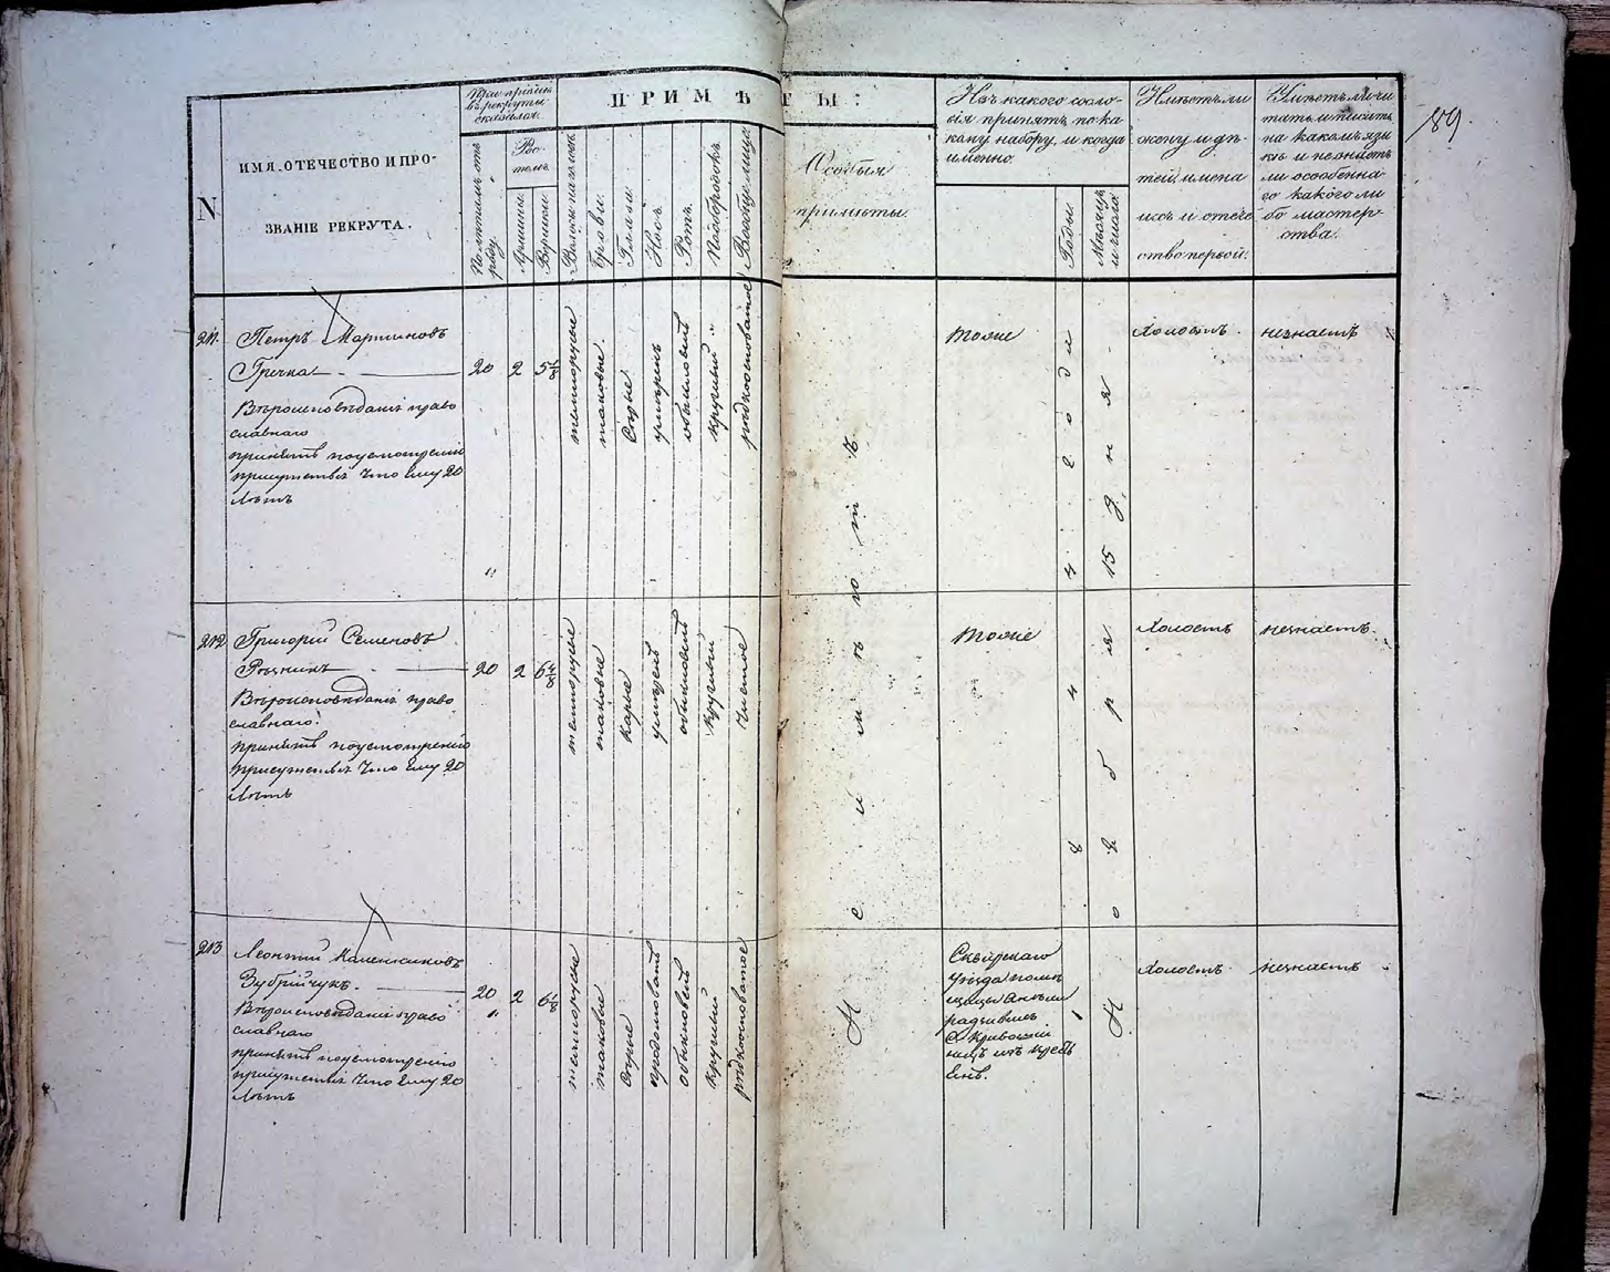 89.
N
ИМЯ, ОТЕЧЕСТВО И ПРО-
ЗВАНІЕ РЕКРУТА.
При пріемѣ
въ рекруты
оказался.
Полѣтамъ отъ
роду.
Ро-
стомъ
Аршины.
Вершки.
ПРИМѢТЫ:
Волосы на головѣ
Брови.
Глаза.
Носъ.
Ротъ.
Подбородокъ.
Вообще лице.
Особыя
примѣты.
Изъ какого сосло-
вія принятъ, по ка
кому набору, и когда
именно.
Годы.
Мѣсяцъ
и число.
Имѣетъ ли
жену и дѣ-
тей, имена
ихъ и отече
ство первой.
Умѣетъ ли чи
тать и писать
на какомъ язы
кѣ и не знаетъ
ли особенна-
го какого ли
бо мастер-
ства.
211.
Петръ Мартиновъ
Гречка
Вѣроисповѣданія право
славнаго
принятъ поусмотрѣнію
присутствія что ему 20
лѣтъ
20
2
5 4/8
темнорусые
таковые.
Сѣрые
умѣренъ
обыкновенъ
круглый
рябковатое
тоже
холостъ.
незнаетъ
212
Григорій Семеновъ
Вѣроисповѣданія право
славнаго.
принятъ поусмотрѣнію
присутствія что ему 20
лѣтъ
20
2
6 4/8
темнорусые
таковые
Карые
умѣренъ
обыкновенъ
круглый
Чистое
тоже
холостъ
незнаетъ.
213
Леонтій
Зубрійчукъ.
Вѣроисповѣданія право
славнаго
принятъ поусмотрѣнію
присутствія что ему 20
лѣтъ
20
2
темнорусые
таковые
Сѣрые
продолговатъ
обыкновенъ
круглый
Сквирскаго
уѣзда помѣ
щицы
изъ крестъ
янъ.
холостъ
незнаетъ
Неимѣетъ
184 4 года
Ноября 15 дня